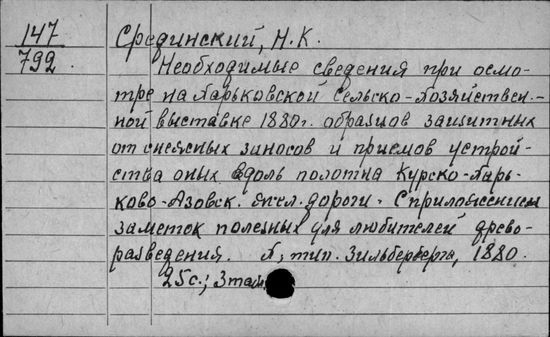 147
792.
Срединский, Н.К.
Необходимые сведения при осмо-
тре на Харьковской Сельско-Хозяйствен.-
ной выставке 1880г. образцов защитных
от снежных заносов и приемов устрой-
ства оных вдоль полотна Курско-Харь-
ково-Азовск. жел. дороги. С приложением
заметок полезных для любителей древо-
разведения. Х, тип. Зильберберга, 1880.
25с.; 3 таб